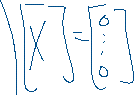 \ [X] = [0 ⋮ 0]